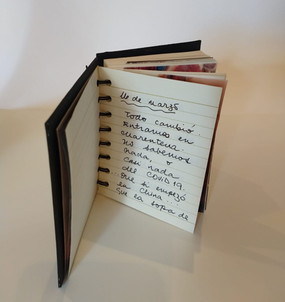 16 de marzo
Todo cambió.
Entramos en
cuarentena.
No sabemos
nada, o
casi nada
del COVID19.
Que si empezó
en China,
que la sopa de